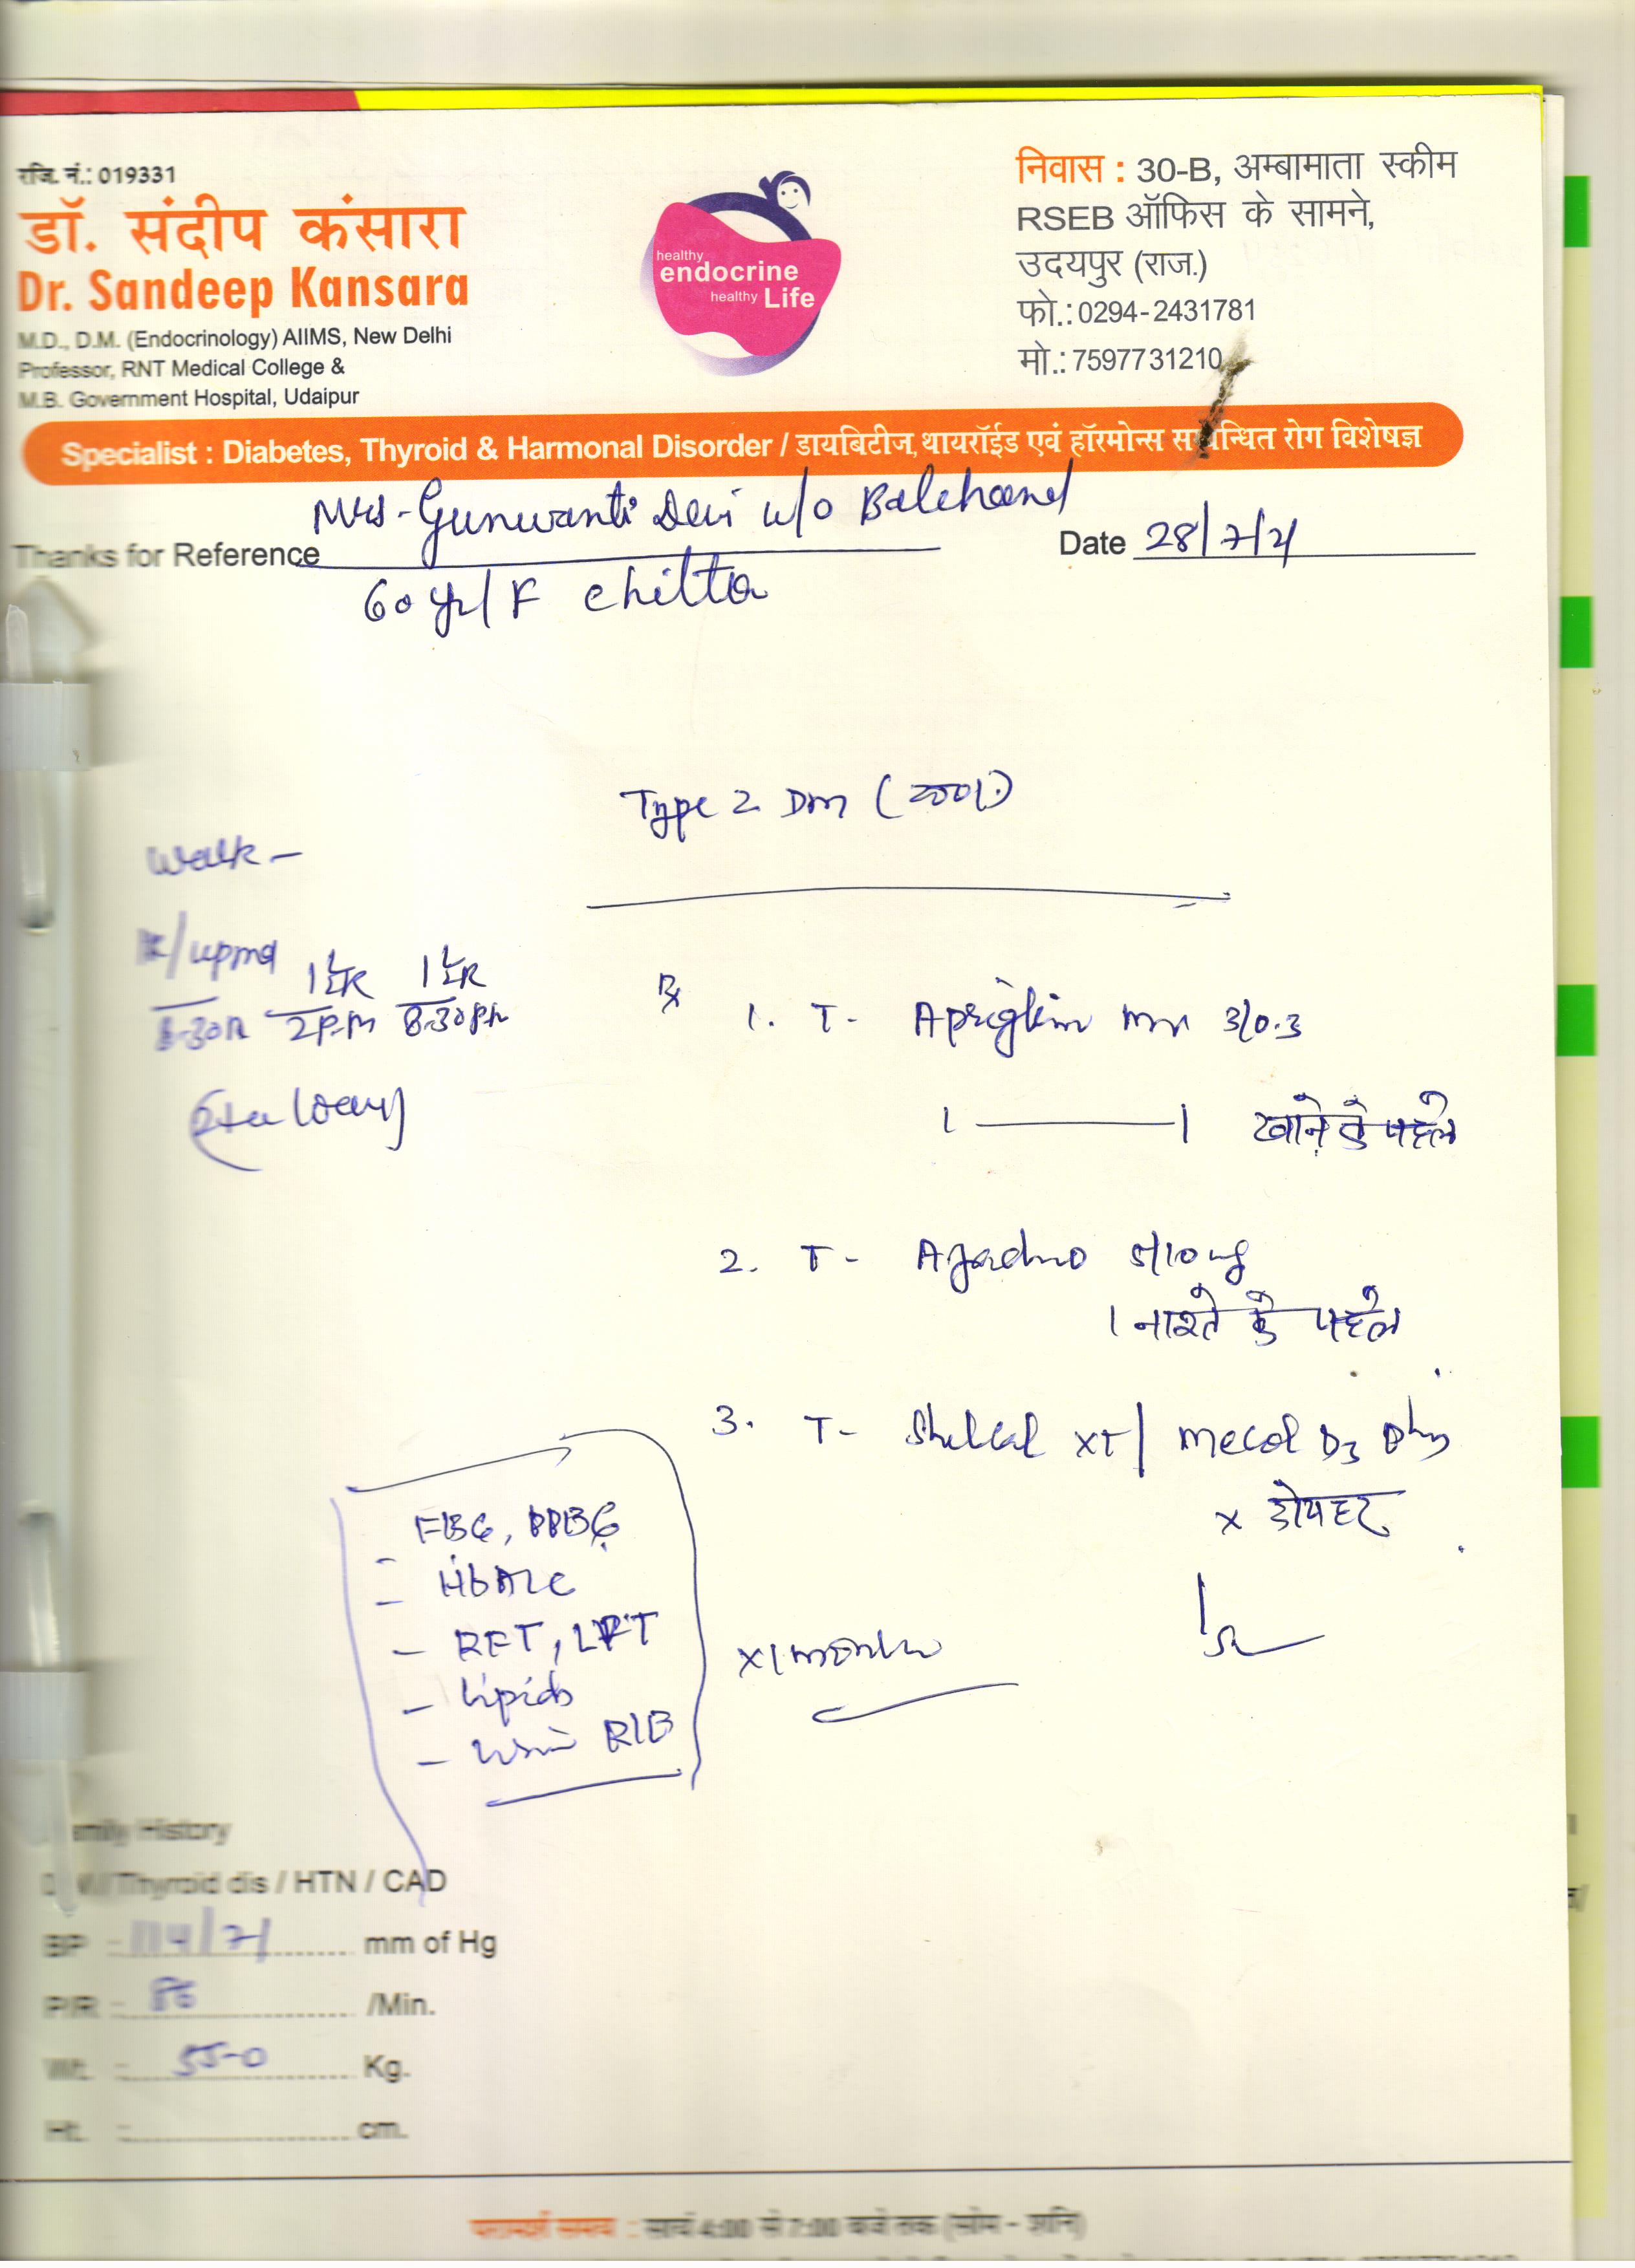 रजि. नं.: 019331
डॉ. संदीप कंसारा
Dr. Sandeep Kansara
M.D., D.M. (Endocrinology) AIIMS, New Delhi
Professor, RNT Medical College &
M.B. Government Hospital, Udaipur
healthy
endocrine
healthy Life
निवास : 30-B, अम्बामाता स्कीम
RSEB ऑफिस के सामने,
उदयपुर (राज.)
फो.: 0294-2431781
मो.: 7597731210
Specialist : Diabetes, Thyroid & Harmonal Disorder / डायबिटीज, थायरॉईड एवं हॉरमोन्स सम्बन्धित रोग विशेषज्ञ
Mrs - Gunwanti Devi w/o Balchand
Thanks for Reference
Date 28/7/21
60 yr/F chitta
Type 2 Dm (2001)
Walk -
/upma 1½R 1½R
8.30A 2P.M 8.30PM
Rx 1. T - mr 3/0.3
1 — 1 खाने के पहले
2. T - 5/10 mg
1 नाश्ते के पहले
3. T - Shelcal XT / Mecol D3
x दोपहर
- FBG, PPBG
- HbA1c
- RFT, LFT
- Lipids
- R/B
x 1 month
Family History
DM / Thyroid dis / HTN / CAD
BP : 114/71 mm of Hg
P/R : 86 /Min.
Wt. : 55-0 Kg.
Ht. : cm.
परामर्श समय : सायं 4:00 से 7:00 बजे तक (सोम - शनि)